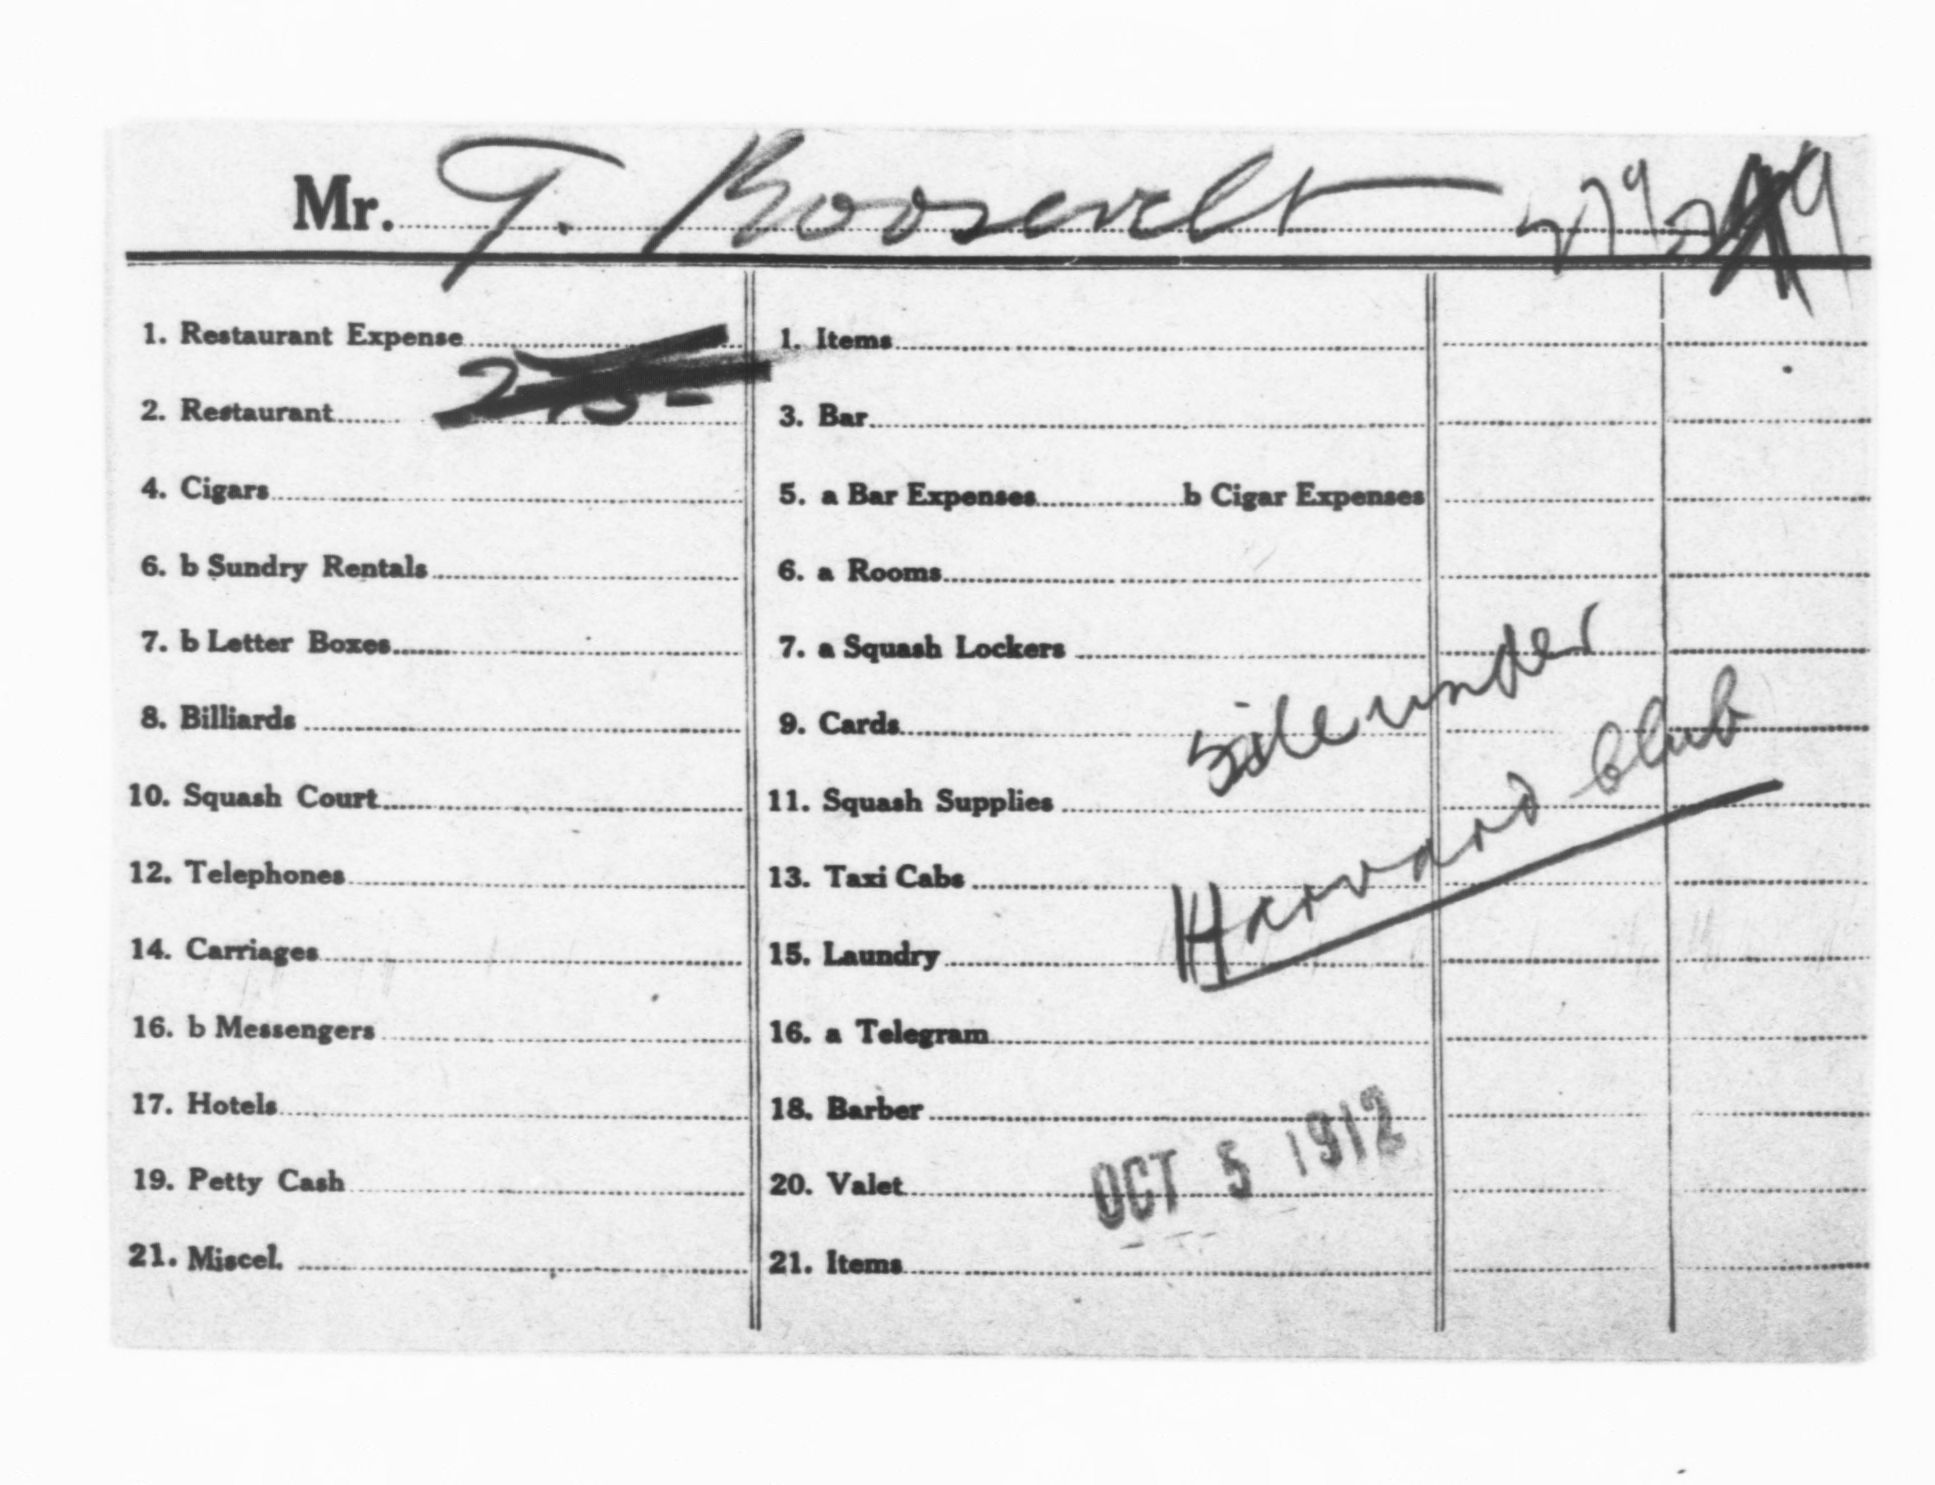 Mr. T. Roosevelt 279
1. Restaurant Expense
1. Items
2. Restaurant
3. Bar
4. Cigars
5. a Bar Expenses b Cigar Expenses
6. b Sundry Rentals
6. a Rooms
7. b Letter Boxes
7. a Squash Lockers
8. Billiards
9. Cards
10. Squash Court
11. Squash Supplies
12. Telephones
13. Taxi Cabs
14. Carriages
15. Laundry
16. b Messengers
16. a Telegram
17. Hotels
18. Barber
19. Petty Cash
20. Valet
21. Miscel.
21. Items
under
Harvard Club
OCT 5 1912